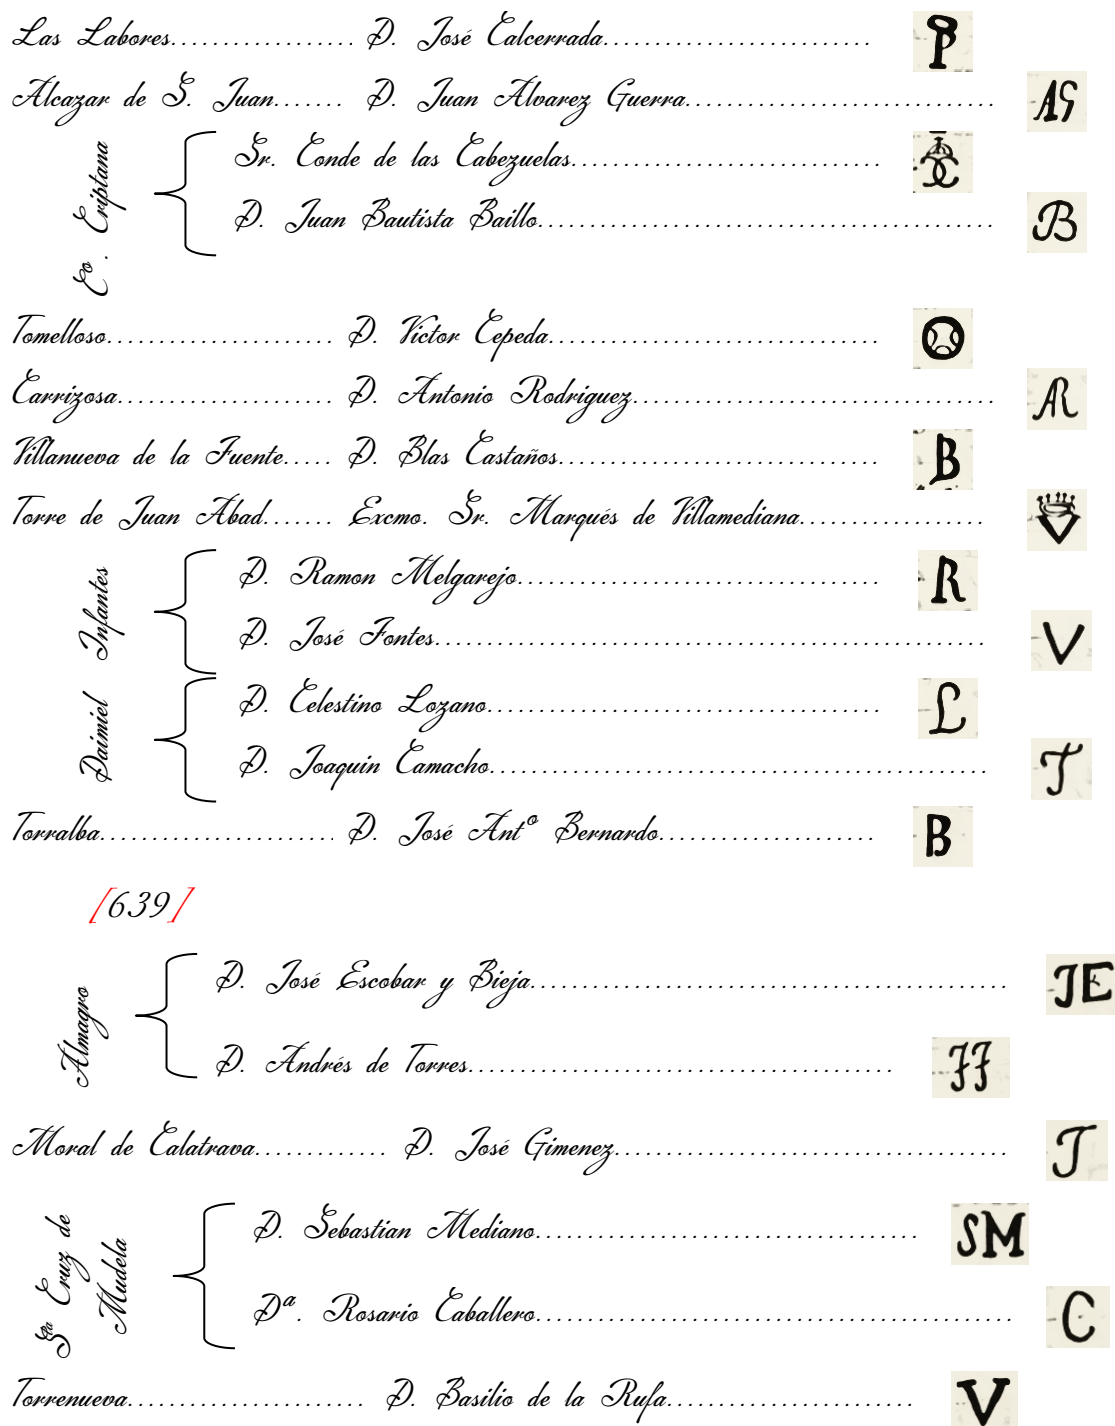 Las Labores.................. D. José Calcerrada.......................... P
Alcazar de S. Juan....... D. Juan Alvarez Guerra.............................. AG
Co. Criptana
Sr. Conde de las Cabezuelas.............................. CC
D. Juan Bautista Baillo............................................ B
Tomelloso...................... D. Victor Cepeda................................
Carrizosa..................... D. Antonio Rodriguez................................... AR
Villanueva de la Fuente..... D. Blas Castaños............................... B
Torre de Juan Abad....... Excmo. Sr. Marqués de Villamediana.................. V
Infantes
D. Ramon Melgarejo................................... R
D. José Fontes..................................................... V
Daimiel
D. Celestino Lozano...................................... L
D. Joaquin Camacho................................................ T
Torralba....................... D. José Antº Bernardo..................... B
[639]
Almagro
D. José Escobar y Bieja.............................................. JE
D. Andrés de Torres......................................... FF
Moral de Calatrava............. D. José Gimenez...................................... J
Sta Cruz de
Mudela
D. Sebastian Mediano..................................... SM
Dª. Rosario Caballero.............................................. C
Torrenueva....................... D. Basilio de la Rufa........................ V